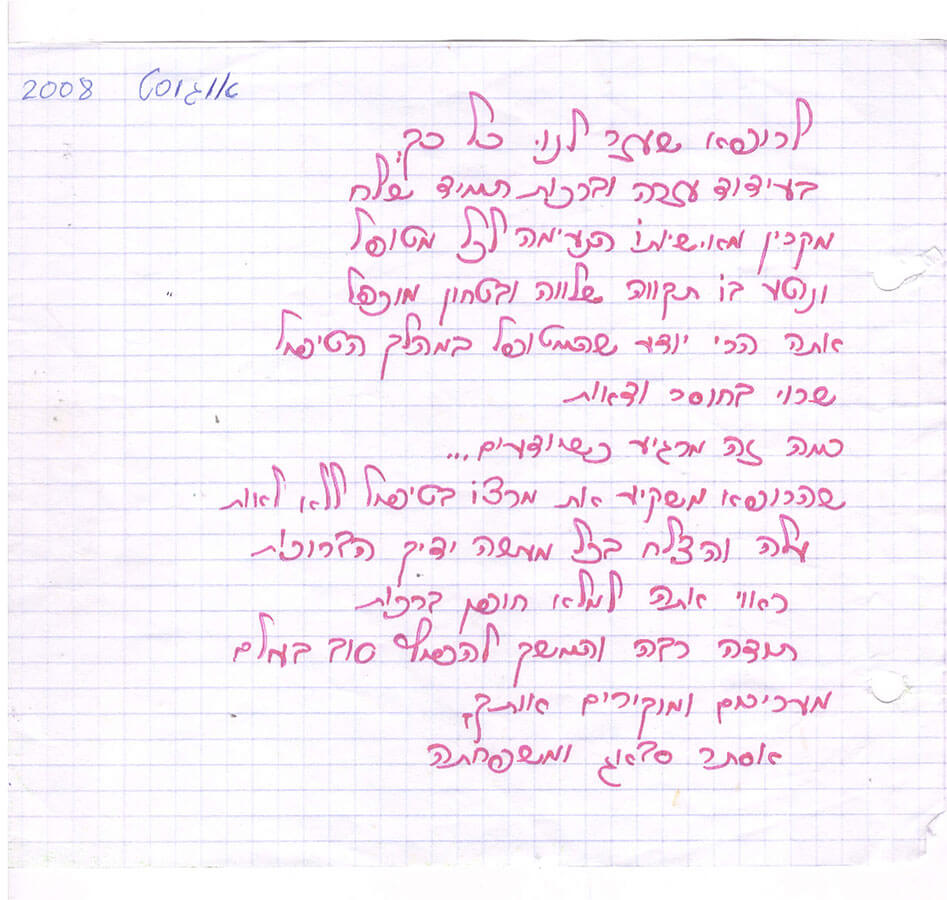 אוגוסט 2008
לרופא שעזר לנו כל כך,
בעידוד עזרה וברכות תמיד שלח
מקרין מאישיותו הנעימה לכל מטופל
ונוטע בו תקווה שלווה ובטחון מוכפל
אתה הכי יודע שהמטופל במהלך הטיפול
שרוי בחוסר ודאות
כמה זה מרגיע כשיודעים...
שהרופא משקיע את מרצו בטיפול ללא לאות
עלה והצלח בכל מעשה ידיך הברוכות
ראוי אתה למלא חופן ברכות
תודה רבה והמשך להכפיל טוב בעולם
מעריכים ומוקירים אותך,
אסתר ומשפחתה